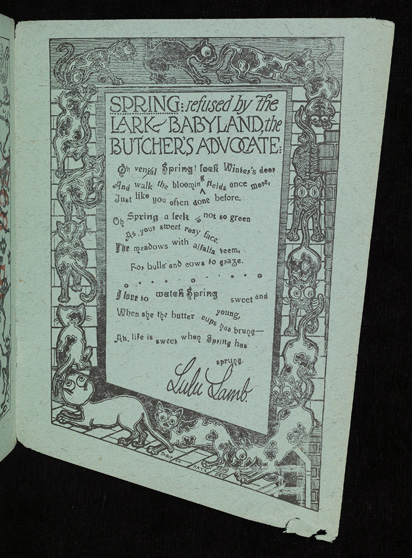 SPRING: refused by The
LARK, BABYLAND, the
BUTCHER'S ADVOCATE:
Oh venjul Spring! loak Winter's door
And walk the bloomin fields once more,
g
Just like you ofen done before.
Oh Spring a leek is not so green
As your sweet rosy face.
The meadows with alfalfa teem,
For bulls and cows to graze.
I love to watch Spring sweet and
young,
When she the butter cups has brung—
Ah, life is sweet when Spring has
sprung.
Lulu Lamb.